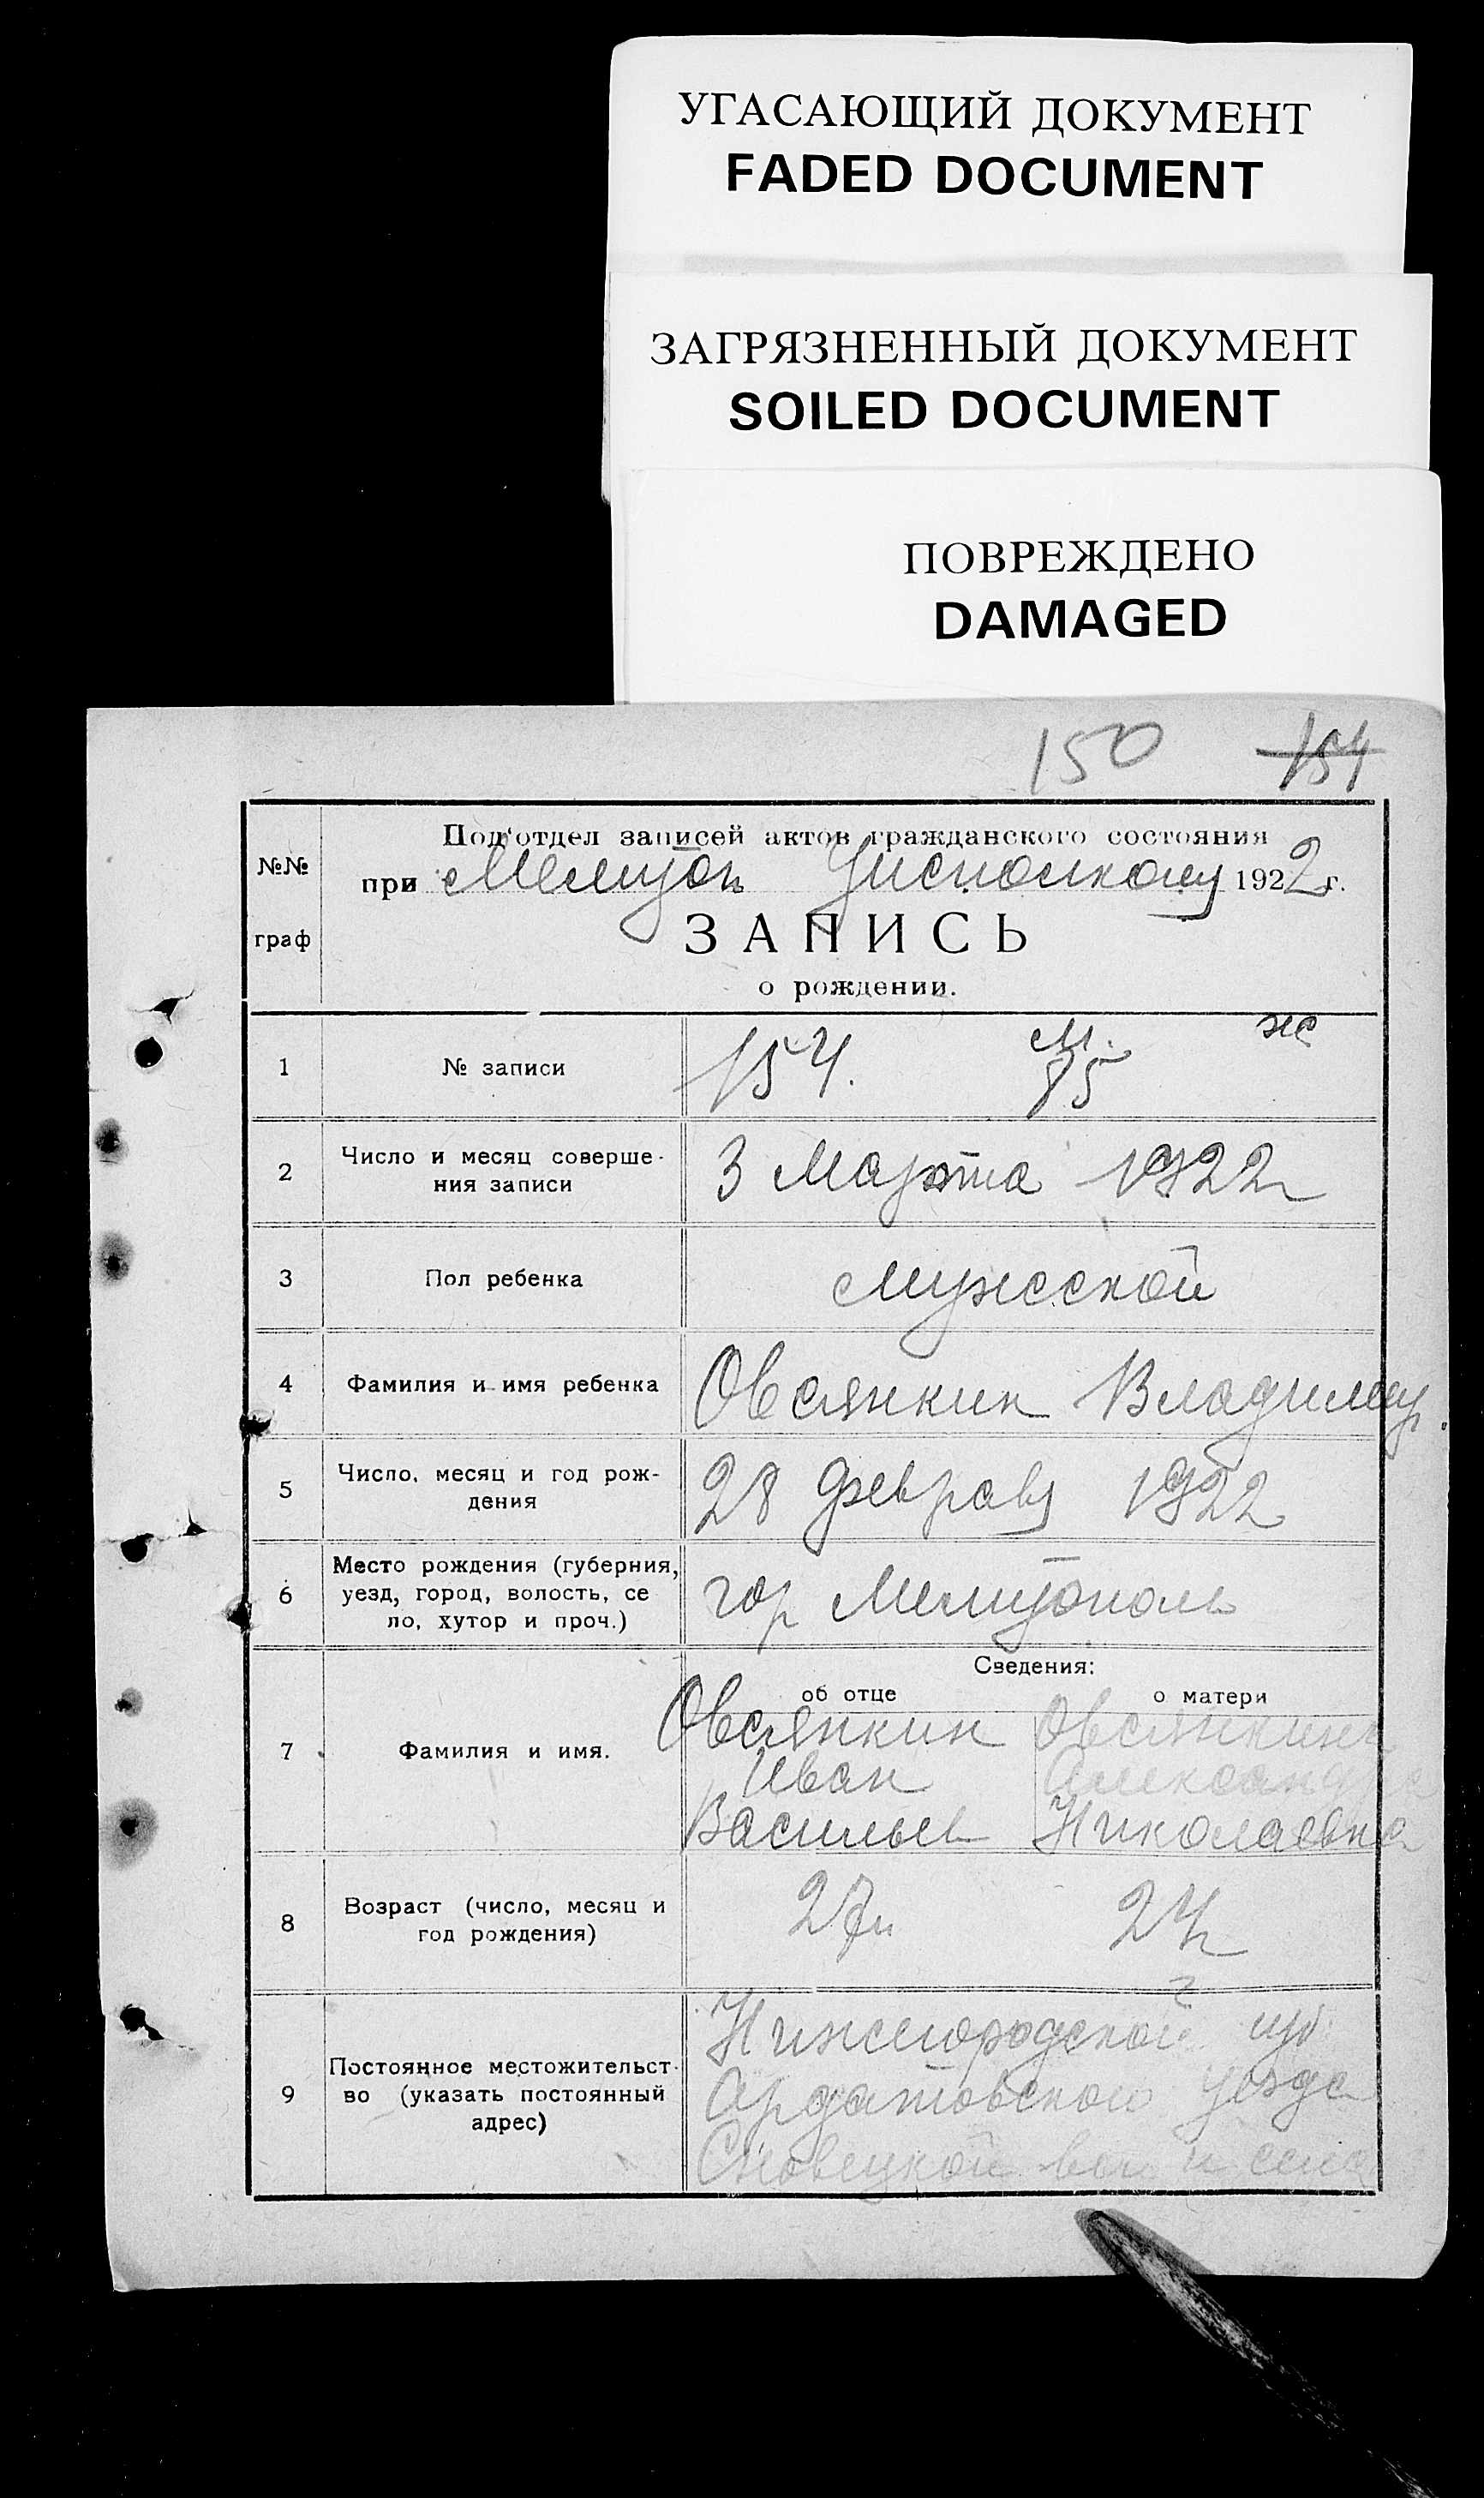 УГАСАЮЩИЙ ДОКУМЕНТ
FADED DOCUMENT
ЗАГРЯЗНЕННЫЙ ДОКУМЕНТ
SOILED DOCUMENT
ПОВРЕЖДЕНО
DAMAGED
150 154
№№
граф
Под‘отдел записей актов гражданского состояния
при Мелитоп Уисполкому 1922 г.
ЗАПИСЬ
о рождении.
1 № записи 154. м. 85 же
2 Число и месяц соверше-
ния записи
3 Марта 1922
3 Пол ребенка мужской
4 Фамилия и имя ребенка Овсянкин Владимир.
5 Число, месяц и год рож-
дения
28 февраля 1922
6 Место рождения (губерния,
уезд, город, волость, се
ло, хутор и проч.)
гор Мелитополь
Сведения:
об отце о матери
7 Фамилия и имя.
Овсянкин Овсянкина
Иван Александра
Васильев Николаевна
8 Возраст (число, месяц и
год рождения)
27л 24
9 Постоянное местожительст-
во (указать постоянный
адрес)
Нижегородской губ
Ардатовского уезда
вол и села